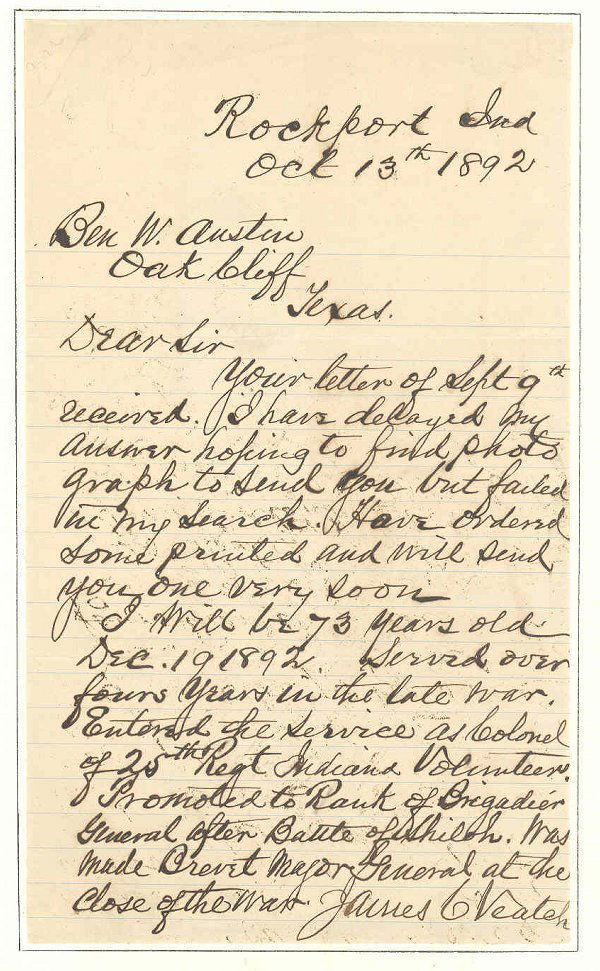 Rockport Ind
Oct 13th 1892
Ben W. Austin
Oak Cliff
Texas.
Dear Sir
Your letter of Sept 9th
received. I have delayed my
answer hoping to find photo
graph to send you but failed
in my search. Have ordered
some printed and will send
you one very soon
I Will be 73 years old
Dec. 19 1892. Served over
fours years in the late war.
Entered the service as Colonel
of 25th Regt Indiana Volunteer.
Promoted to Rank of Brigadier
General after Battle of Shiloh. Was
made Brevet Major General at the
close of the war James C Veatch